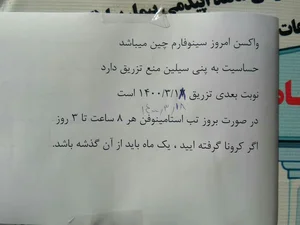 واکسن امروز سینوفارم چین میباشد
حساسیت به پنی سیلین منع تزریق دارد
نوبت بعدی تزریق ۱۴۰۰/۳/۱۸ است
۱۴۰۰/۳/۱۸
در صورت بروز تب استامینوفن هر ۸ ساعت تا ۳ روز
اگر کرونا گرفته ایید ، یک ماه باید از آن گذشته باشد.